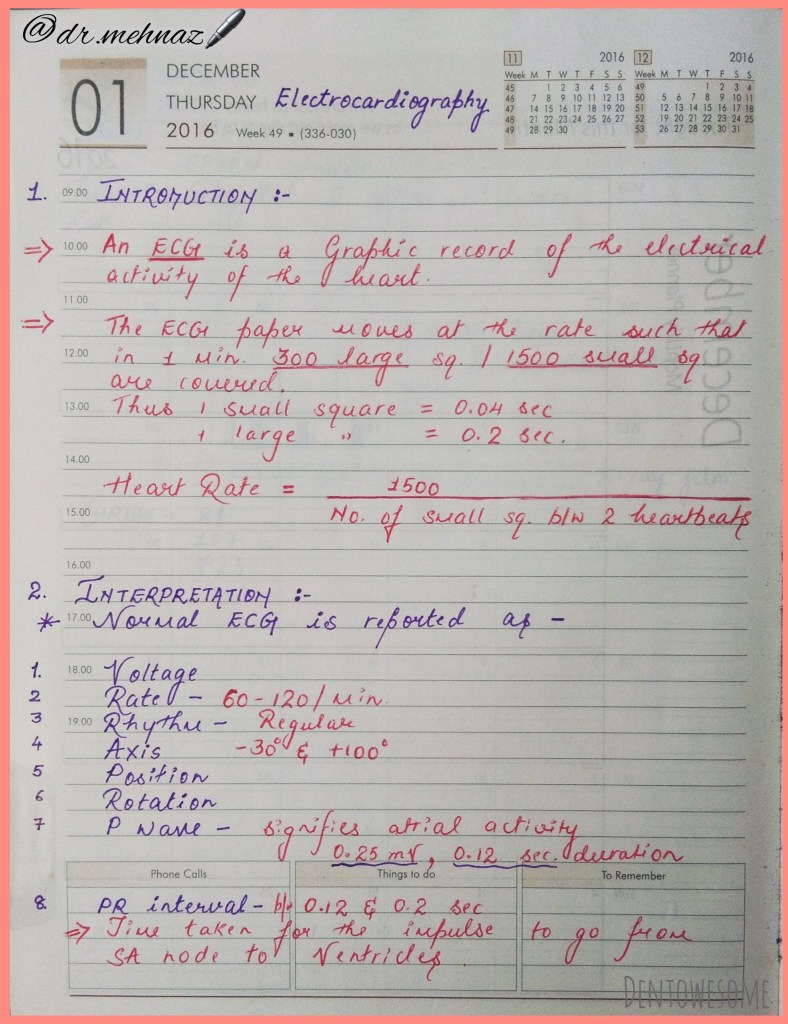 @dr.mehnaz
01
DECEMBER
THURSDAY
2016 Week 49 ▪ (336-030)
Electrocardiography
11 2016
Week M T W T F S S
45 1 2 3 4 5 6
46 7 8 9 10 11 12 13
47 14 15 16 17 18 19 20
48 21 22 23 24 25 26 27
49 28 29 30
12 2016
Week M T W T F S S
49 1 2 3 4
50 5 6 7 8 9 10 11
51 12 13 14 15 16 17 18
52 19 20 21 22 23 24 25
53 26 27 28 29 30 31
1. 09.00 INTRODUCTION :-
⇒ 10.00 An ECG is a Graphic record of the electrical
activity of the heart.
11.00
⇒ The ECG paper moves at the rate such that
12.00 in 1 min. 300 large sq. / 1500 small sq
are covered.
13.00 Thus 1 small square = 0.04 sec
1 large " = 0.2 sec.
14.00
Heart Rate = 1500
15.00 No. of small sq. b/w 2 heartbeats
16.00
2. INTERPRETATION :-
* 17.00 Normal ECG is reported as -
1. 18.00 Voltage
2 Rate - 60-120/min.
3 19.00 Rhythm - Regular
4 Axis -30° & +100°
5 Position
6 Rotation
7 P wave - signifies atrial activity
0.25 mV, 0.12 sec. duration
Phone Calls Things to do To Remember
8. PR interval - b/w 0.12 & 0.2 sec
⇒ Time taken for the impulse to go from
SA node to Ventricles.
DENTOWESOME